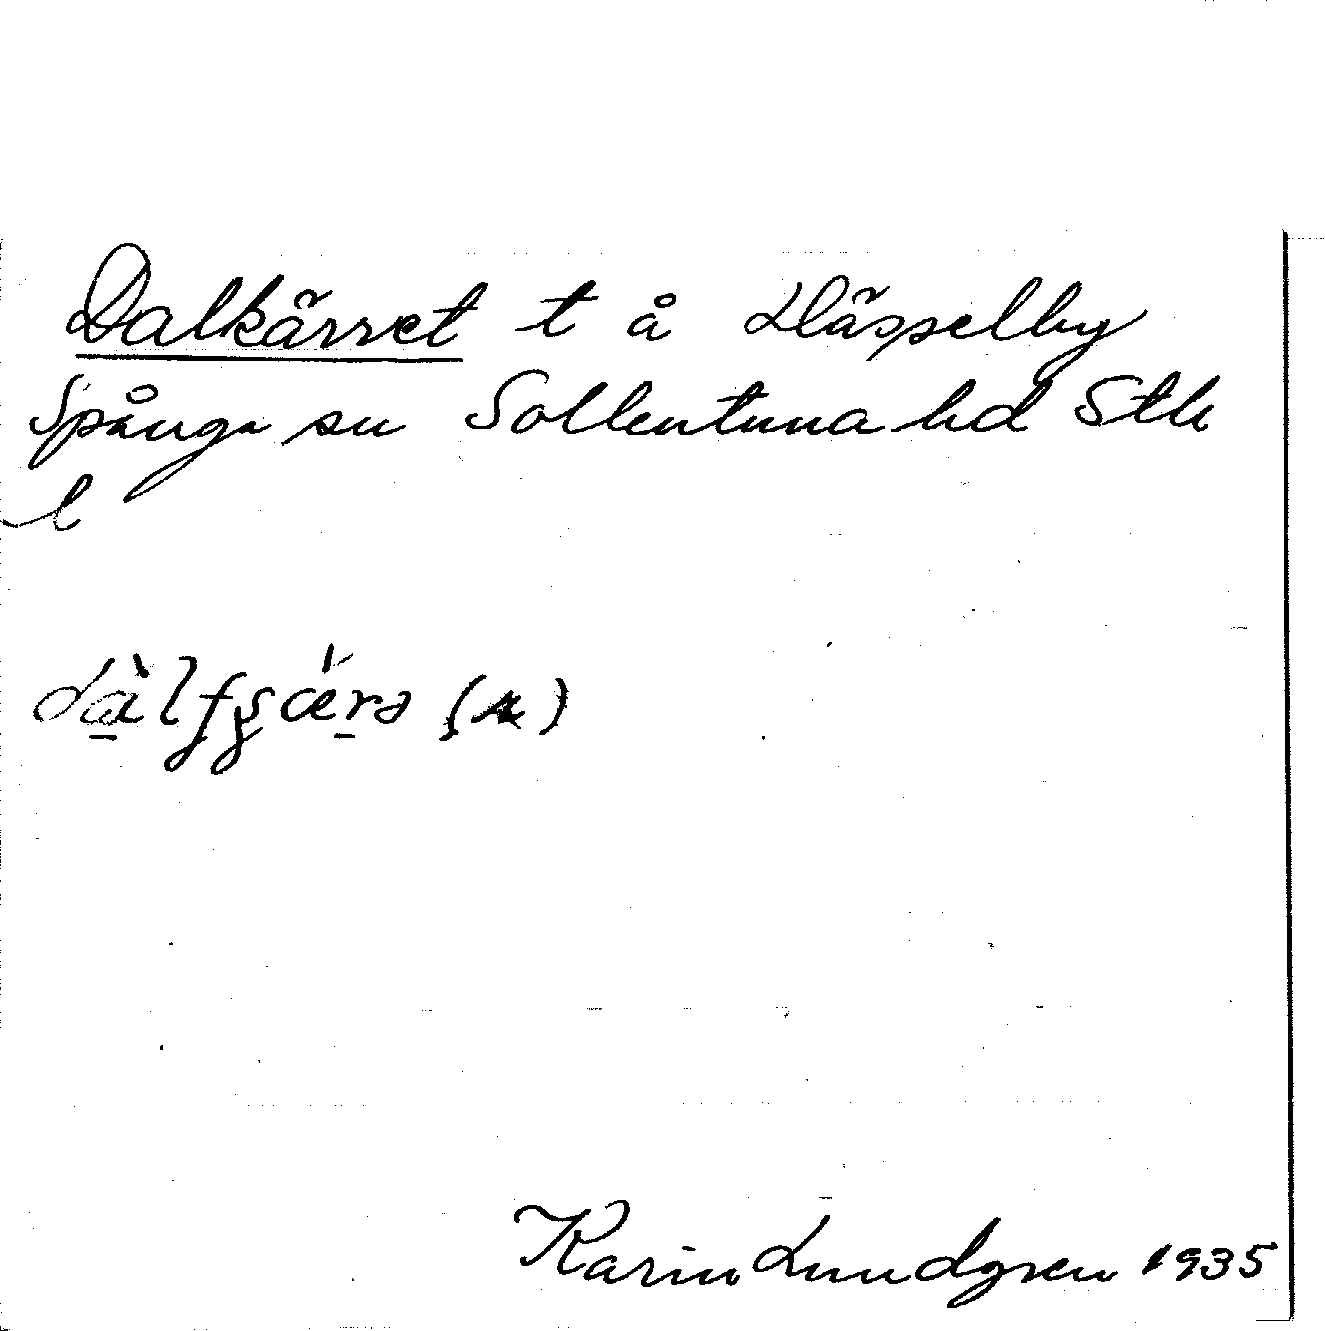 Dalkärret t å Hässelby
Spånga sn Sollentuna hd Sth
l
Karin Lundgren 1935